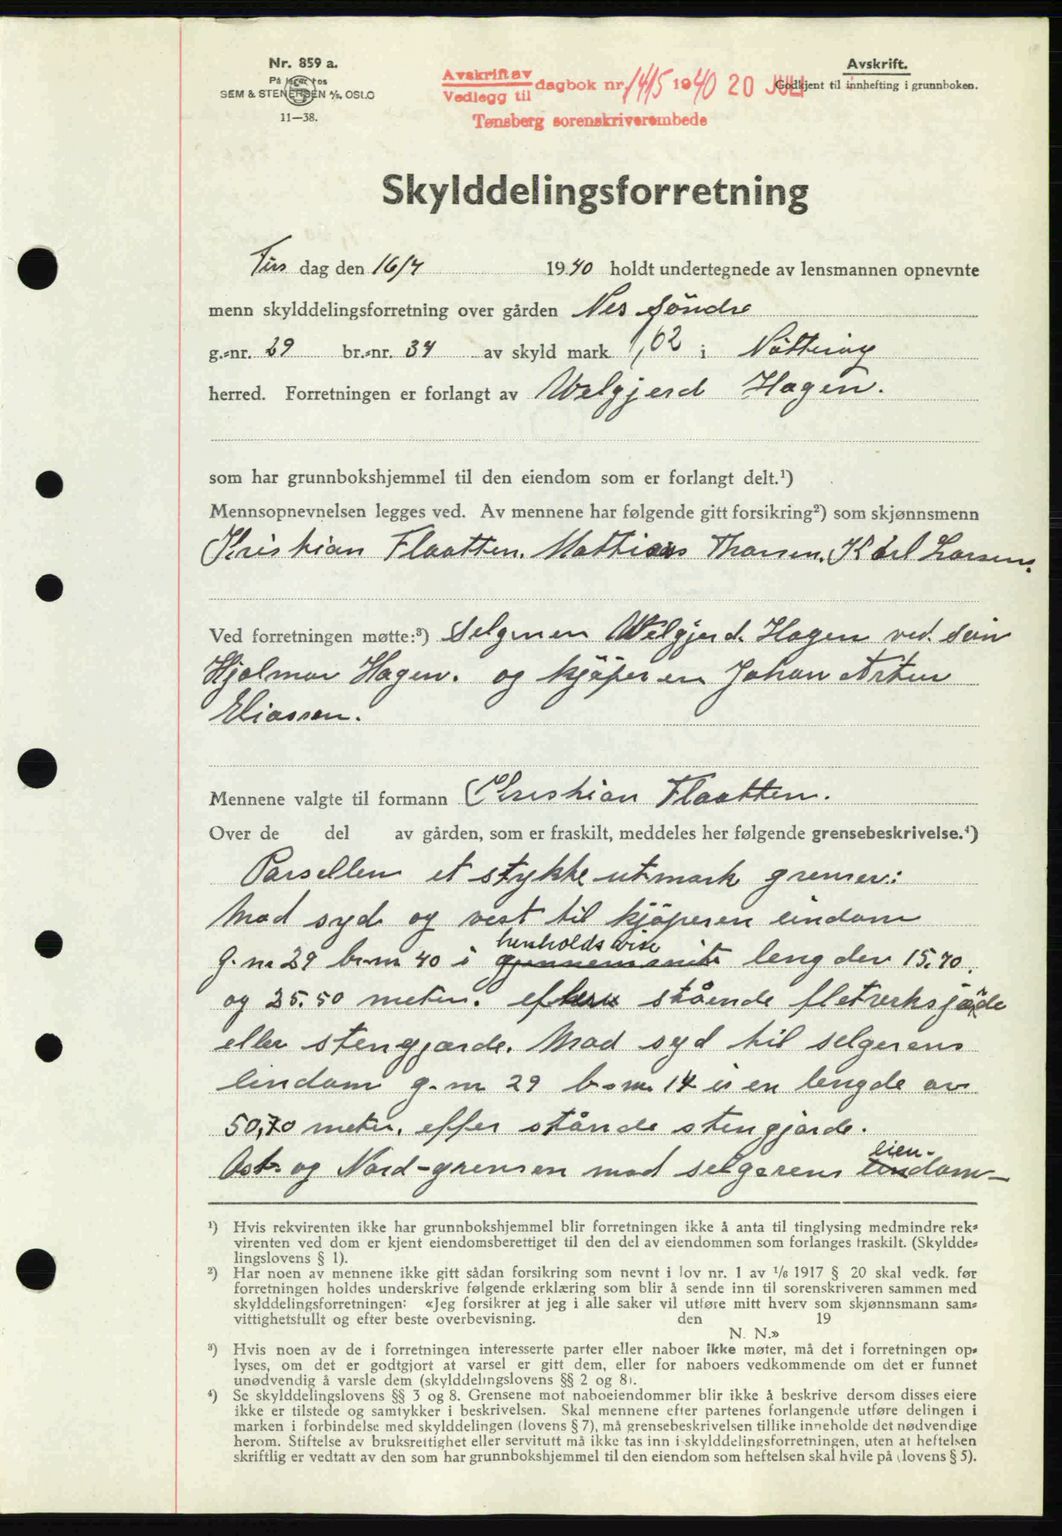 Nr. 859 a.
På lager hos
SEM & STENERSEN A/S, OSLO
11—38.
Avskrift av
Vedlegg til
dagbok nr. 1415 1940 20 JULI
Tønsberg sorenskriverembede
Avskrift.
Godkjent til innhefting i grunnboken.
Skylddelingsforretning
Tirs dag den 16/7 1940 holdt undertegnede av lensmannen opnevnte
menn skylddelingsforretning over gården Nes söndre
g.-nr. 29 br.-nr. 34 av skyld mark 1,02 i Nötteröy
herred. Forretningen er forlangt av Welgjerd Hagen.
som har grunnbokshjemmel til den eiendom som er forlangt delt.¹)
Mennsopnevnelsen legges ved. Av mennene har følgende gitt forsikring²) som skjønnsmenn
Kristian Flaatten. Mathias Thorsen. Karl Larsen.
Ved forretningen møtte:³) Selgeren Welgjerd. Hagen ved. sön
Hjalmar Hagen. og kjöperen Johan Artur
Eliassen.
Mennene valgte til formann Kristian Flaatten.
Over de del av gården, som er fraskilt, meddeles her følgende grensebeskrivelse.⁴)
Parsellen et stykke utmark grenser:
Mod syd og vest til kjöperen eindom
henholdsvise
g. nr 29 br. nr 40 i lengder 15.70.
og 25.50 meter. efter stående fletverksjærde
eller stengjærde. Mod syd til selgerens
eindom g. nr 29 b. nr. 14 er en lengde av
50,70 meter. efter stånde stengjærde.
eien-
Öst. og Nord-grensen mod selgerens eindom-
¹) Hvis rekvirenten ikke har grunnbokshjemmel blir forretningen ikke å anta til tinglysing medmindre rek-
virenten ved dom er kjent eiendomsberettiget til den del av eiendommen som forlanges fraskilt. (Skyldde-
lingslovens § 1).
²) Har noen av mennene ikke gitt sådan forsikring som nevnt i lov nr. 1 av 1/8 1917 § 20 skal vedk. før
forretningen holdes underskrive følgende erklæring som blir å sende inn til sorenskriveren sammen med
skylddelingsforretningen: «Jeg forsikrer at jeg i alle saker vil utføre mitt hverv som skjønnsmann sam-
vittighetsfullt og efter beste overbevisning. den 19
N. N.»
³) Hvis noen av de i forretningen interesserte parter eller naboer ikke møter, må det i forretningen op-
lyses, om det er godtgjort at varsel er gitt dem, eller for naboers vedkommende om det er funnet
unødvendig å varsle dem (skylddelingslovens §§ 2 og 8).
⁴) Se skylddelingslovens §§ 3 og 8. Grensene mot naboeiendommer blir ikke å beskrive dersom disses eiere
ikke er tilstede og samtykker i beskrivelsen. Skal mennene efter partenes forlangende utføre delingen i
marken i forbindelse med skylddelingen (lovens § 7), må grensebeskrivelsen tillike inneholde det nødvendige
herom. Stiftelse av bruksrettighet eller servitutt må ikke tas inn i skylddelingsforretningen, uten at heftelsen
skriftlig er vedtatt av den som har grunnbokshjemmel til den eiendom som heftelsen skal hvile på (lovens § 5).